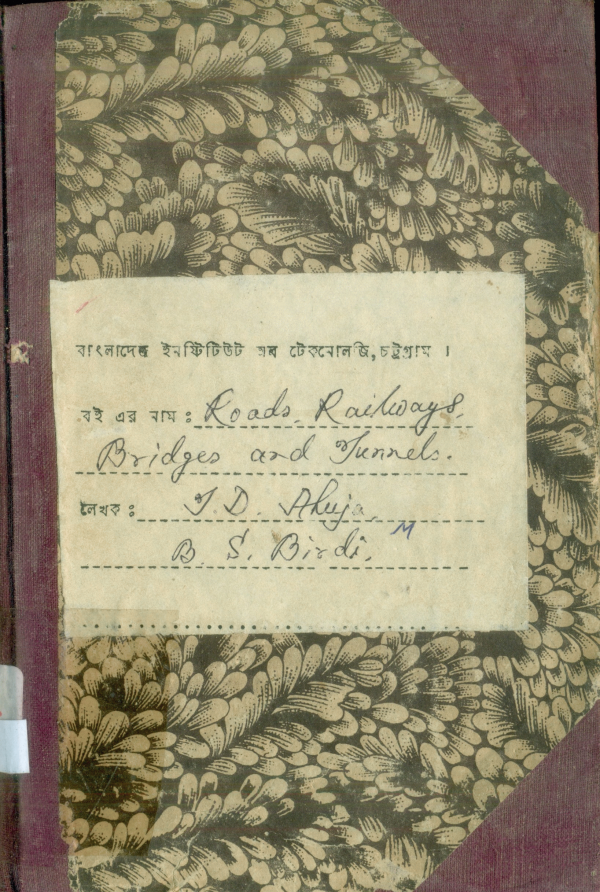 বাংলাদেশ ইনষ্টিটিউট অব টেকনোলজি,চট্টগ্রাম ।
বই এর নাম : Roads, Railways,
Bridges and Tunnels.
লেখক : T.D. Ahuja,
B. S. Birdi. M